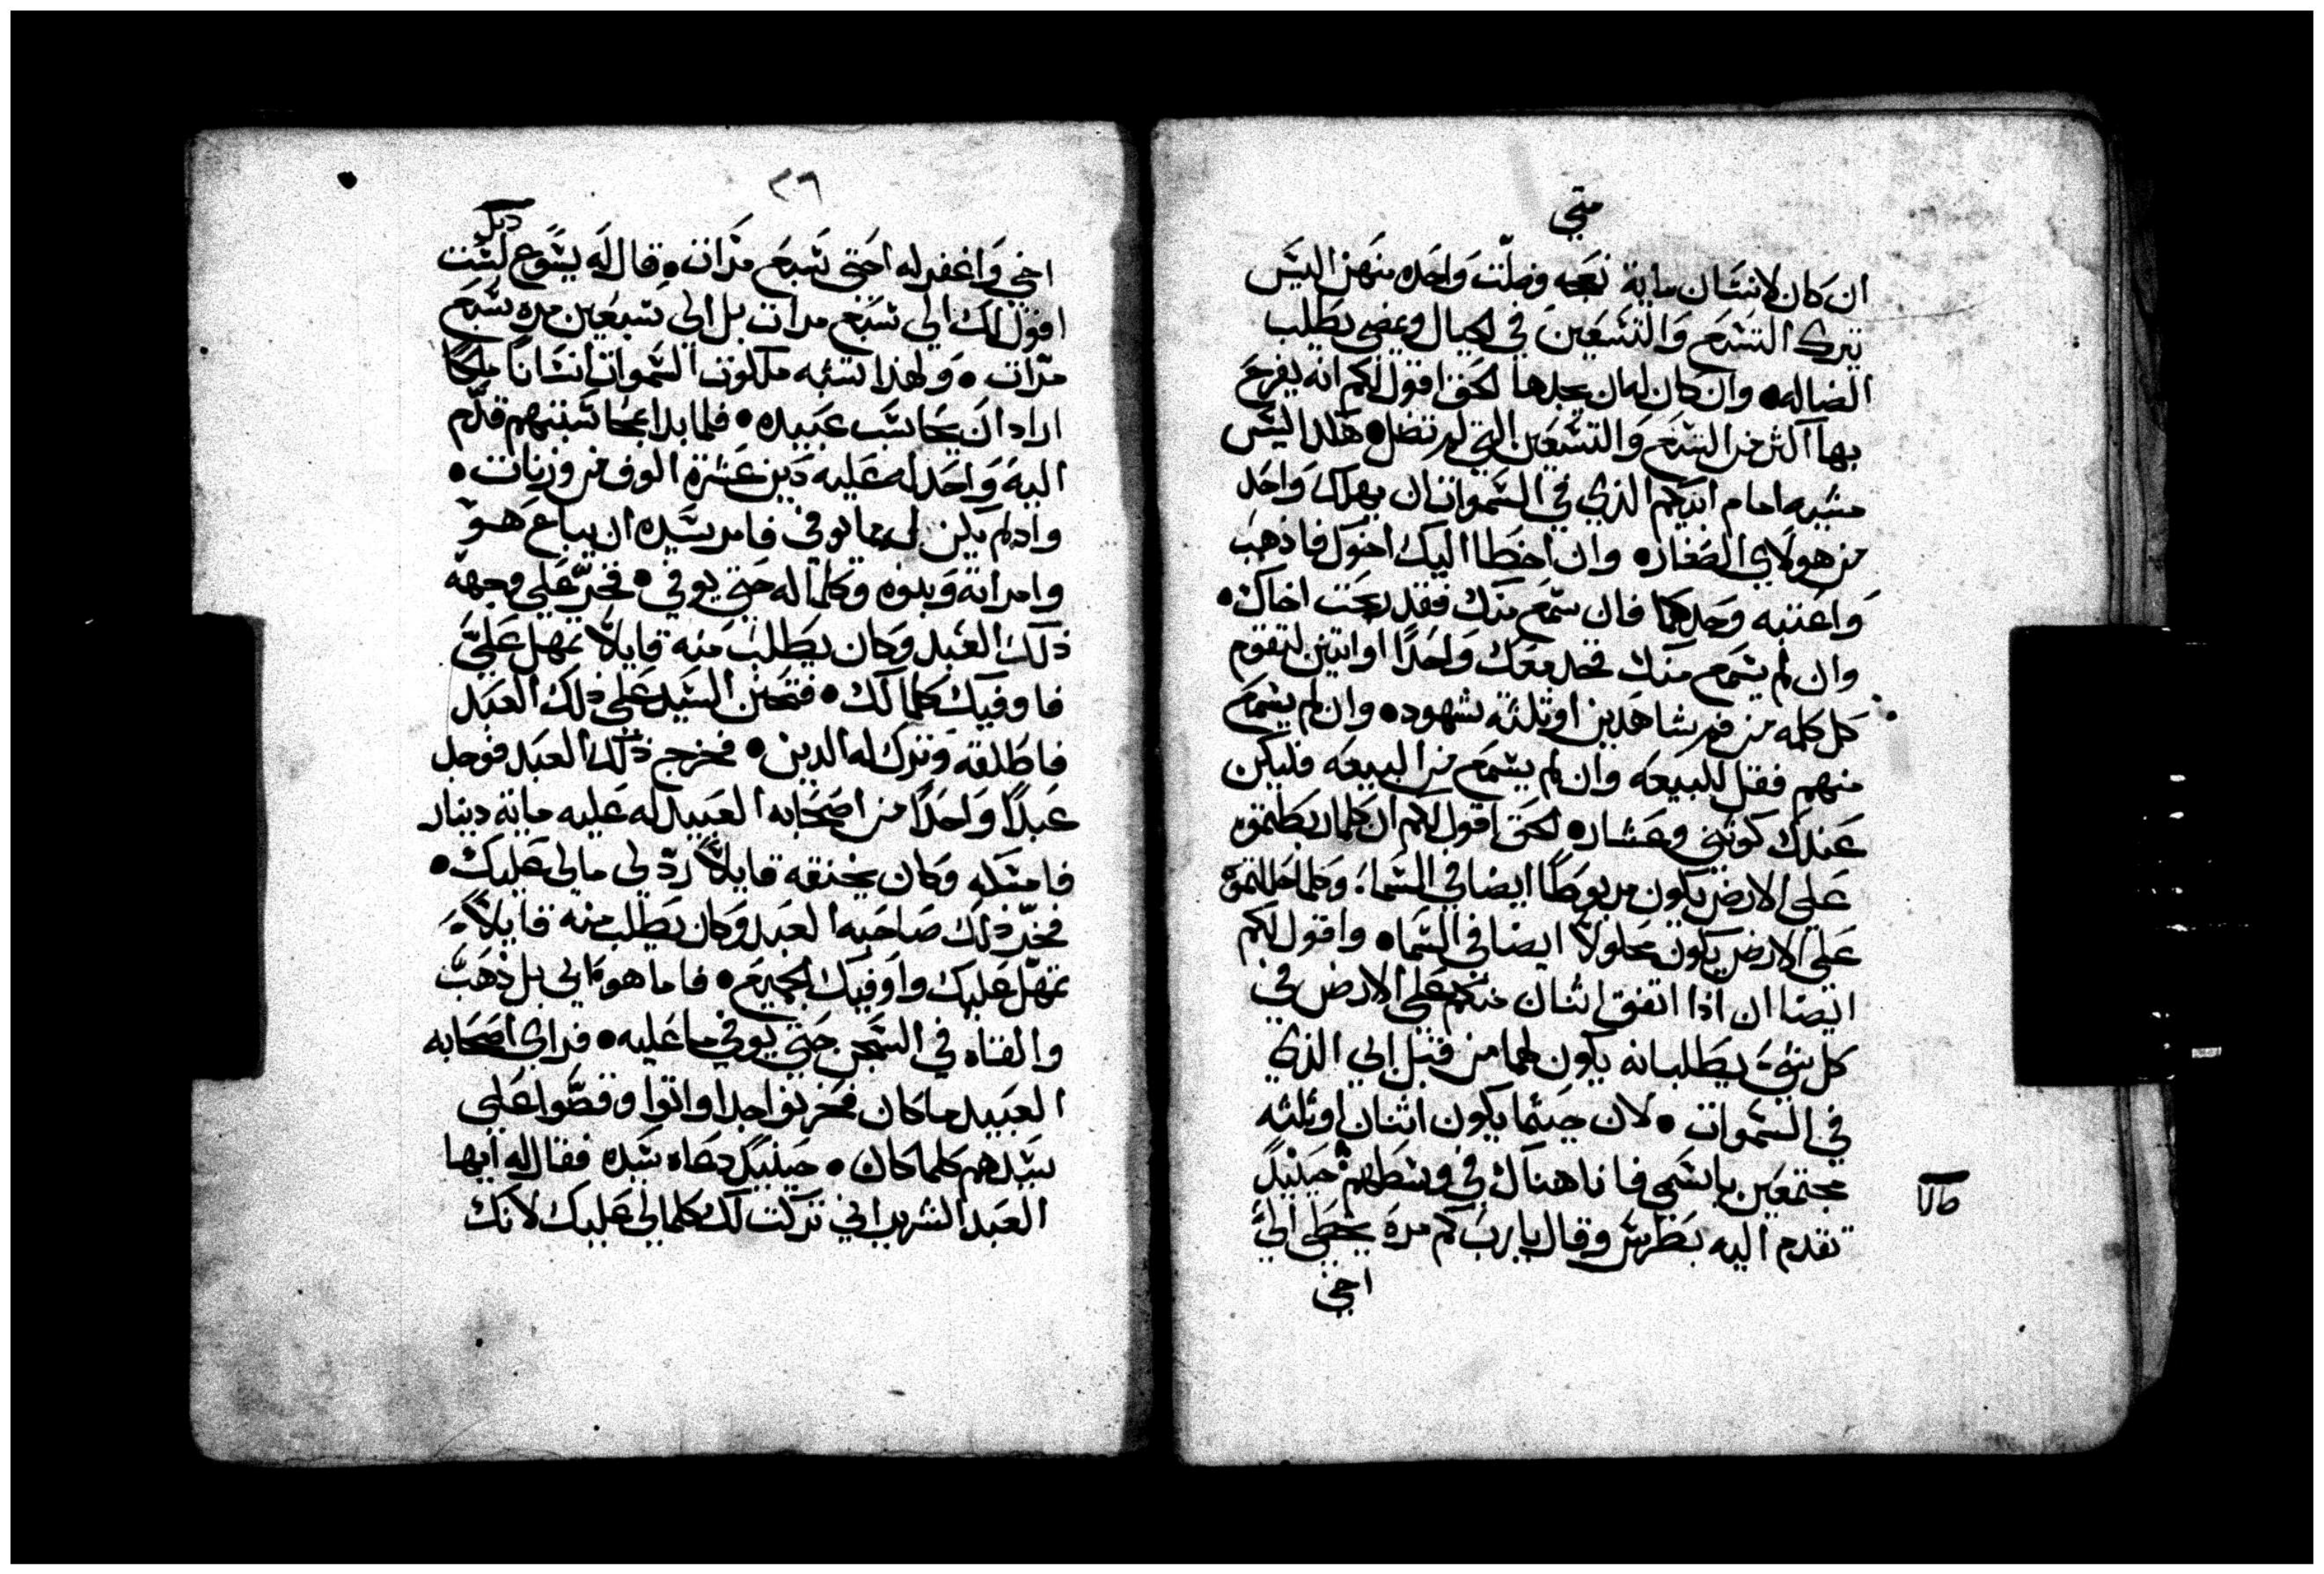 متي
ان كان لانسان ماية نعجه وضلت واحده منهن اليس
يترك التسع والتسعين في الجبال ويمضي يطلب
الضاله • وان كان له ان يجدها الحق اقول لكم انه يفرح
بها اكثر من التسع والتسعين التي لم تضل • هكذا ليس
مشيه امام ابيكم الذي في السموات ان يهلك واحد
من هولاي الصغار • وان اخطا اليك اخوك فاذهب
واعتبه وحدكما فان سمع منك فقد ربحت اخاك •
وان لم يسمع منك فخد معك واحدًا او اتنين لتقوم
كل كلمه من فم شاهدين او ثلثه شهود • وان لم يسمع
منهم فقل للبيعه وان لم يسمع من البيعه فليكن
عندك كوثني وعشار • الحق اقول لكم ان كلما ربطتموه
على الارض يكون مربوطًا ايضا في السماء وكلما حللتموه
على الارض يكون محلولًا ايضا في السماء • واقول لكم
ايضا ان اذا اتفق اثنان منكم على الارض في
كل شي يطلبانه يكون لهما من قبل ابي الذي
في السموات • لان حيثما يكون اثنان او ثلثه
مجتمعين باسمي فانا هناك في وسطهم حينيدٍ
تقدم اليه بطرس وقال يارب كم مره يخطي الي
اخي
٢٦
اخي واغفر له احتى سبع مرات • قال له يسوع لست
اقول لك الى سبع مرات بل الي سبعين مره سبع
مرات • ولهذا تشبه ملكوت السموات انسانًا ملكًا
اراد ان يحاسب عبيده • فلما بدا بمحاسبتهم قدم
اليه واحد له عليه دين عشرة الوف من وزنات •
واد لم يكن له ما يوفي فامر سيده ان يباع هو
وامراته وبنوه وكلما له حتى يوفي • فخر علي وجهه
ذلك العبد وكان يطلب منه قايلًا تمهل علي
فاوفيك كلما لك • فتحنن السيد على ذلك العبد
فاطلقه وترك له الدين • فخرج ذلك العبد فوجد
عبدًا واحدًا من اصحابه العبيد له عليه ماية دينار
فامسكه وكان يخنقه قايلًا رد لي مالي عليك •
فخر ذلك صاحبه العبد وكان يطلب منه قايلًا
تمهل عليك واوفيك الجميع • فاما هو فابى بل ذهب
والقاه في السجن حتي يوفي ما عليه • فراي اصحابه
العبيد ما كان فحزنوا جدا واتوا وقصوا علي
سيدهم كلما كان • حينيدٍ دعاه سيده فقال له ايها
العبد الشرير اني تركت لك كلما لي عليك لانك